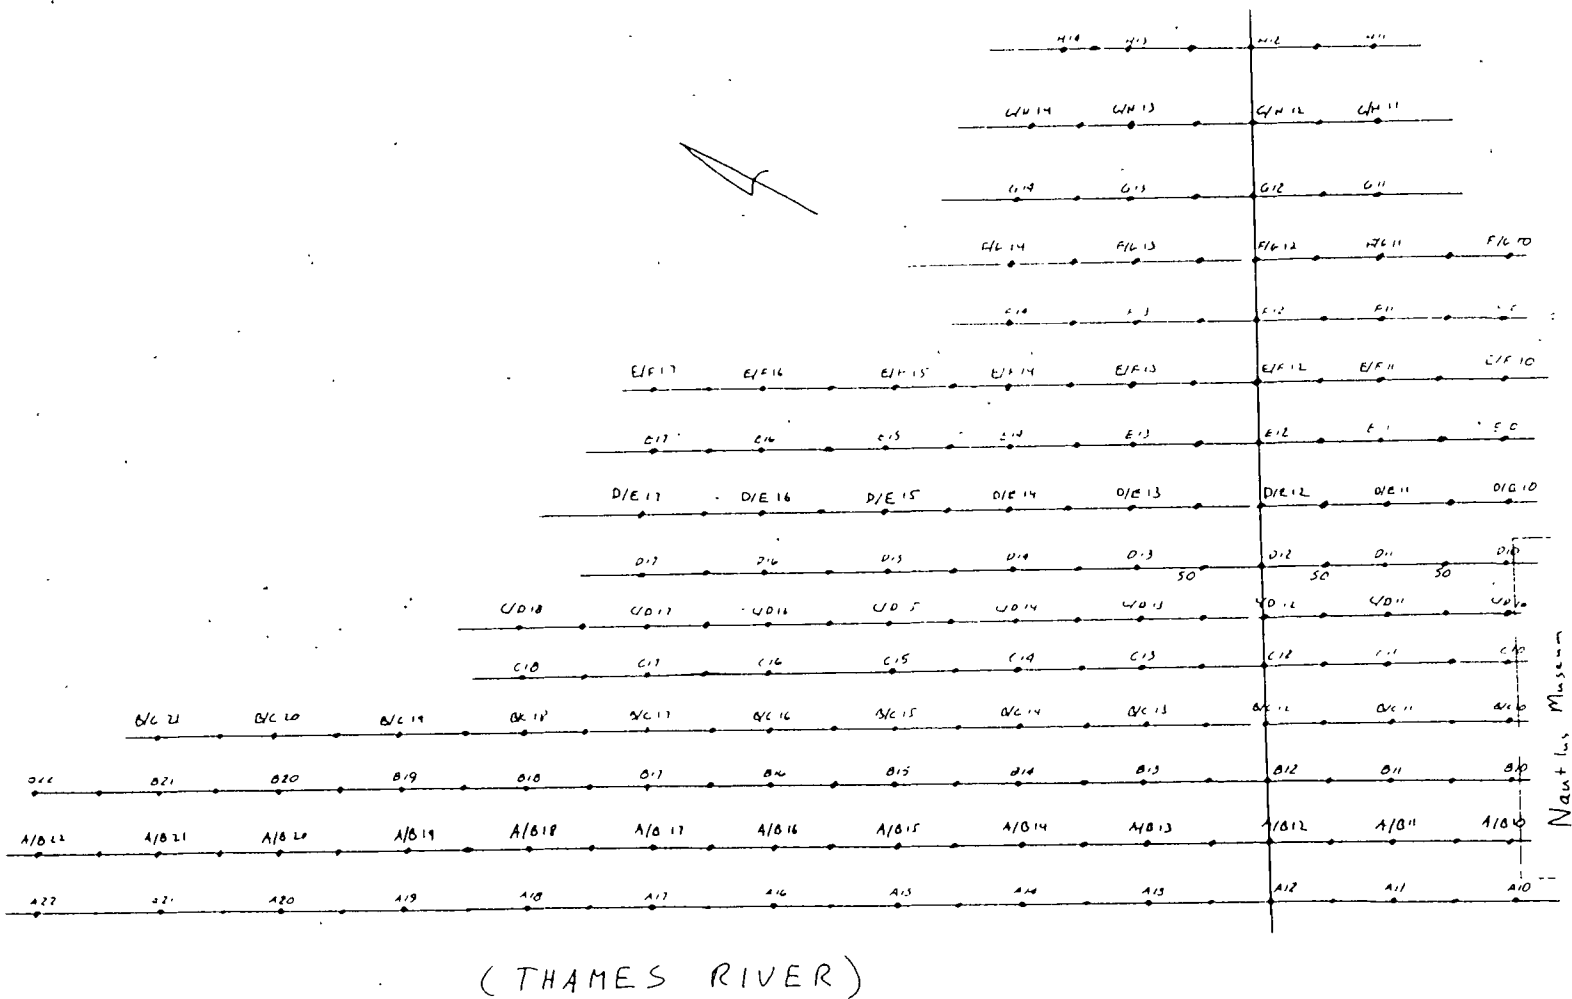 H14 H13 H12 H11
G/H 14 G/H 13 G/H 12 G/H 11
G14 G13 G12 G11
F/G 14 F/G 13 F/G 12 F/G 11 F/G 10
F14 F12 F11
E/F 17 E/F 16 E/F 15 E/F 14 E/F 13 E/F 12 E/F 11 E/F 10
E17 E16 E15 E14 E13 E12
D/E 17 D/E 16 D/E 15 D/E 14 D/E 13 D/E 12 D/E 11 D/E 10
D17 D16 D15 D14 D13 D12 D11 D10
50 50 50
C/D 18 C/D 17 C/D 16 C/D 14 C/D 13 C/D 12 C/D 11 C/D 10
C18 C17 C16 C15 C14 C13 C12 C11 C10
B/C 21 B/C 20 B/C 19 B/C 18 B/C 17 B/C 16 B/C 15 B/C 14 B/C 13 B/C 12 B/C 11 B/C 10
B21 B20 B19 B18 B17 B16 B15 B14 B13 B12 B11 B10
A/B 22 A/B 21 A/B 20 A/B 19 A/B 18 A/B 17 A/B 16 A/B 15 A/B 14 A/B 13 A/B 12 A/B 11 A/B 10
A22 A21 A20 A19 A18 A17 A16 A15 A14 A13 A12 A11 A10
Nautilus Museum
(THAMES RIVER)